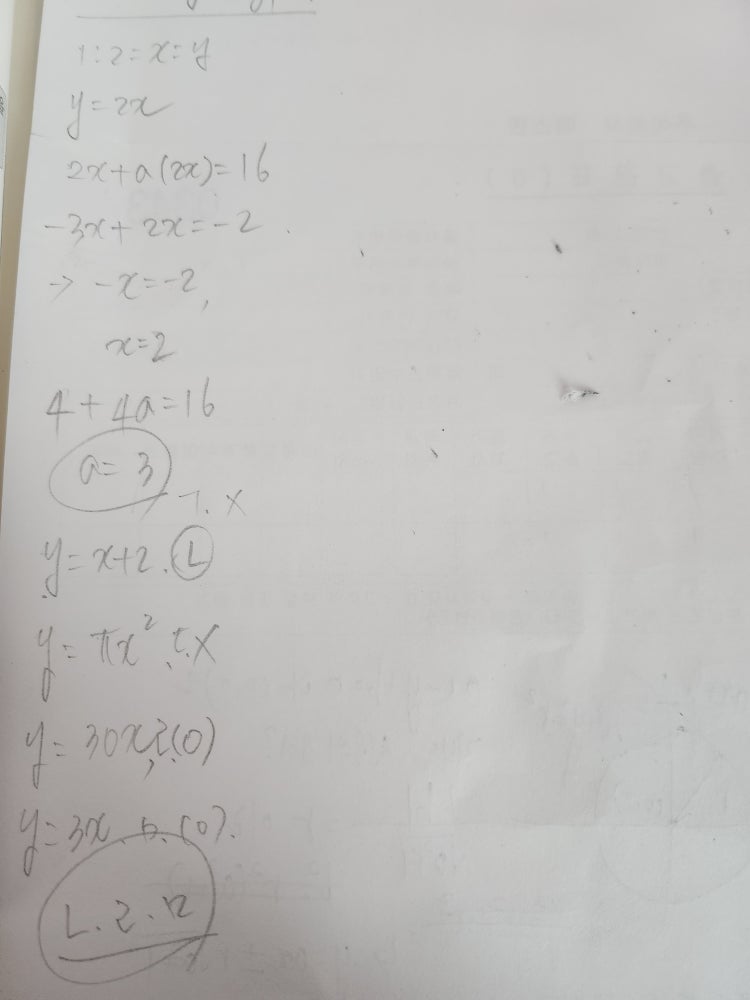 1:2=x:y
y=2x
2x+a(2x)=16
-3x+2x=-2
→ -x=-2,
x=2
4+4a=16
a=3
ㄱ. X
y=x+2. ㄴ
y=πx², ㄷ.X
y=30x, ㄹ(O)
y=3x ㅁ.(O).
ㄴ.ㄹ.ㅁ